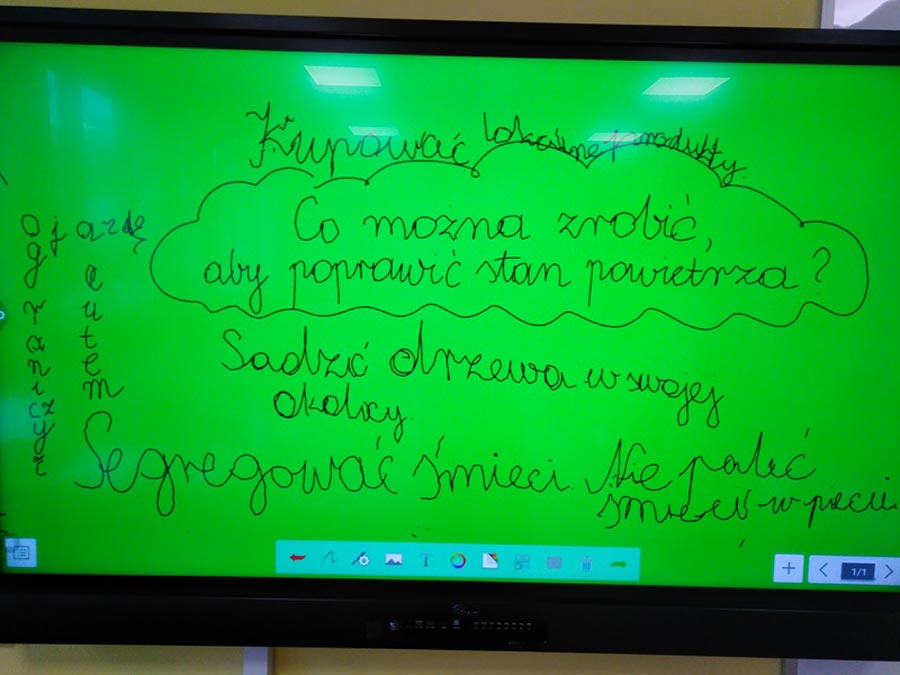 Kupować lokalne produkty.
Co można zrobić,
aby poprawić stan powietrza?
Ograniczyć
jazdę
autem
Sadzić drzewa w swojej
okolicy.
Segregować śmieci.
Nie palić
śmieci w piecu.
1/1